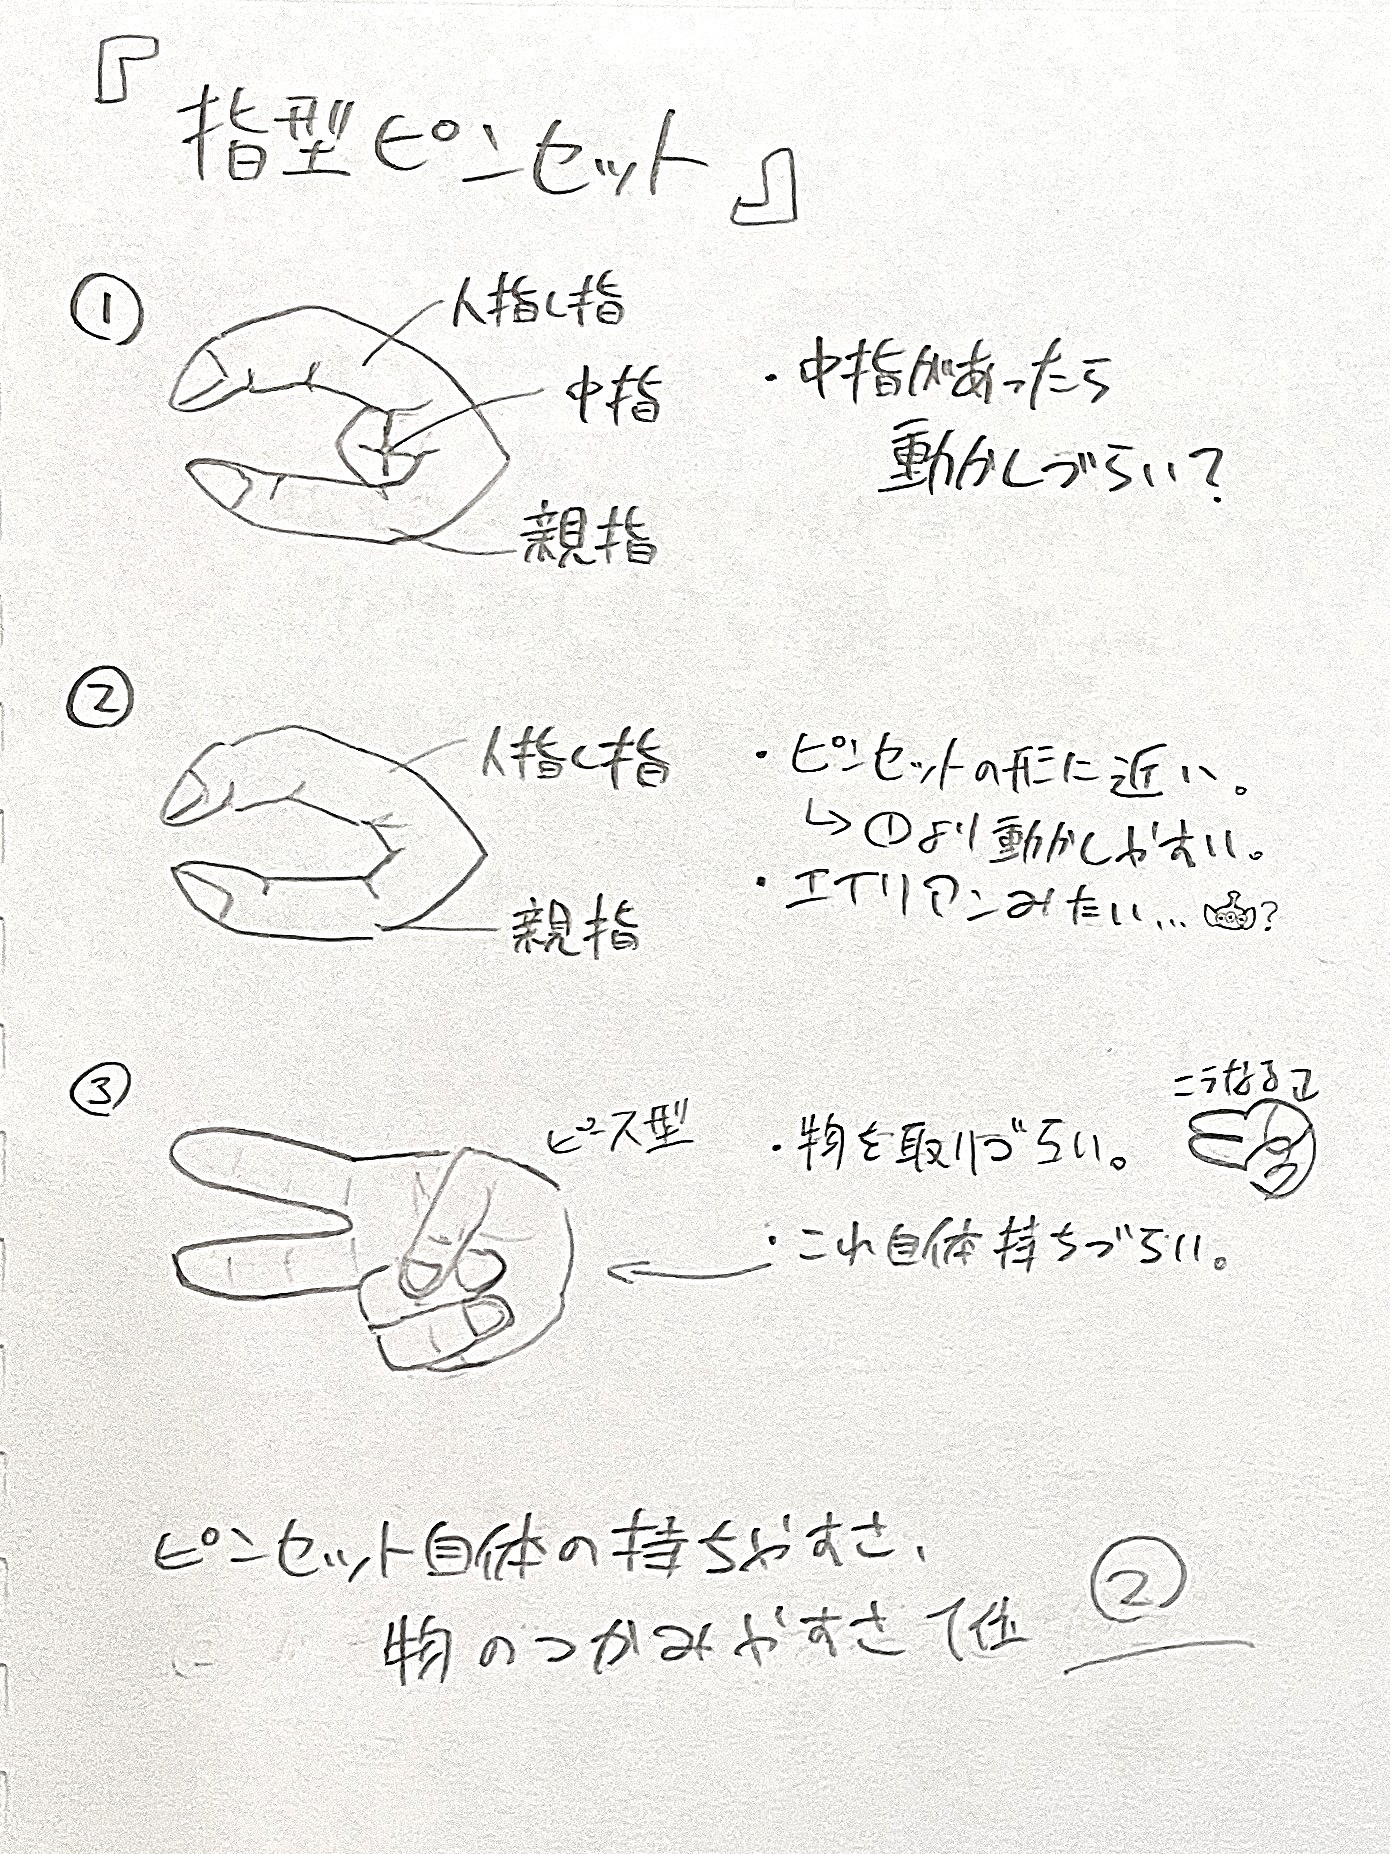 『指型ピンセット』
①
人指し指
中指
親指
・中指があったら
動かしづらい?
②
人指し指
親指
・ピンセットの形に近い。
↳①より動かしやすい。
・エイリアンみたい…?
③
ピース型
・物を取りづらい。
こうなる
・これ自体持ちづらい。
ピンセット自体の持ちやすさ、
物のつかみやすさで
②